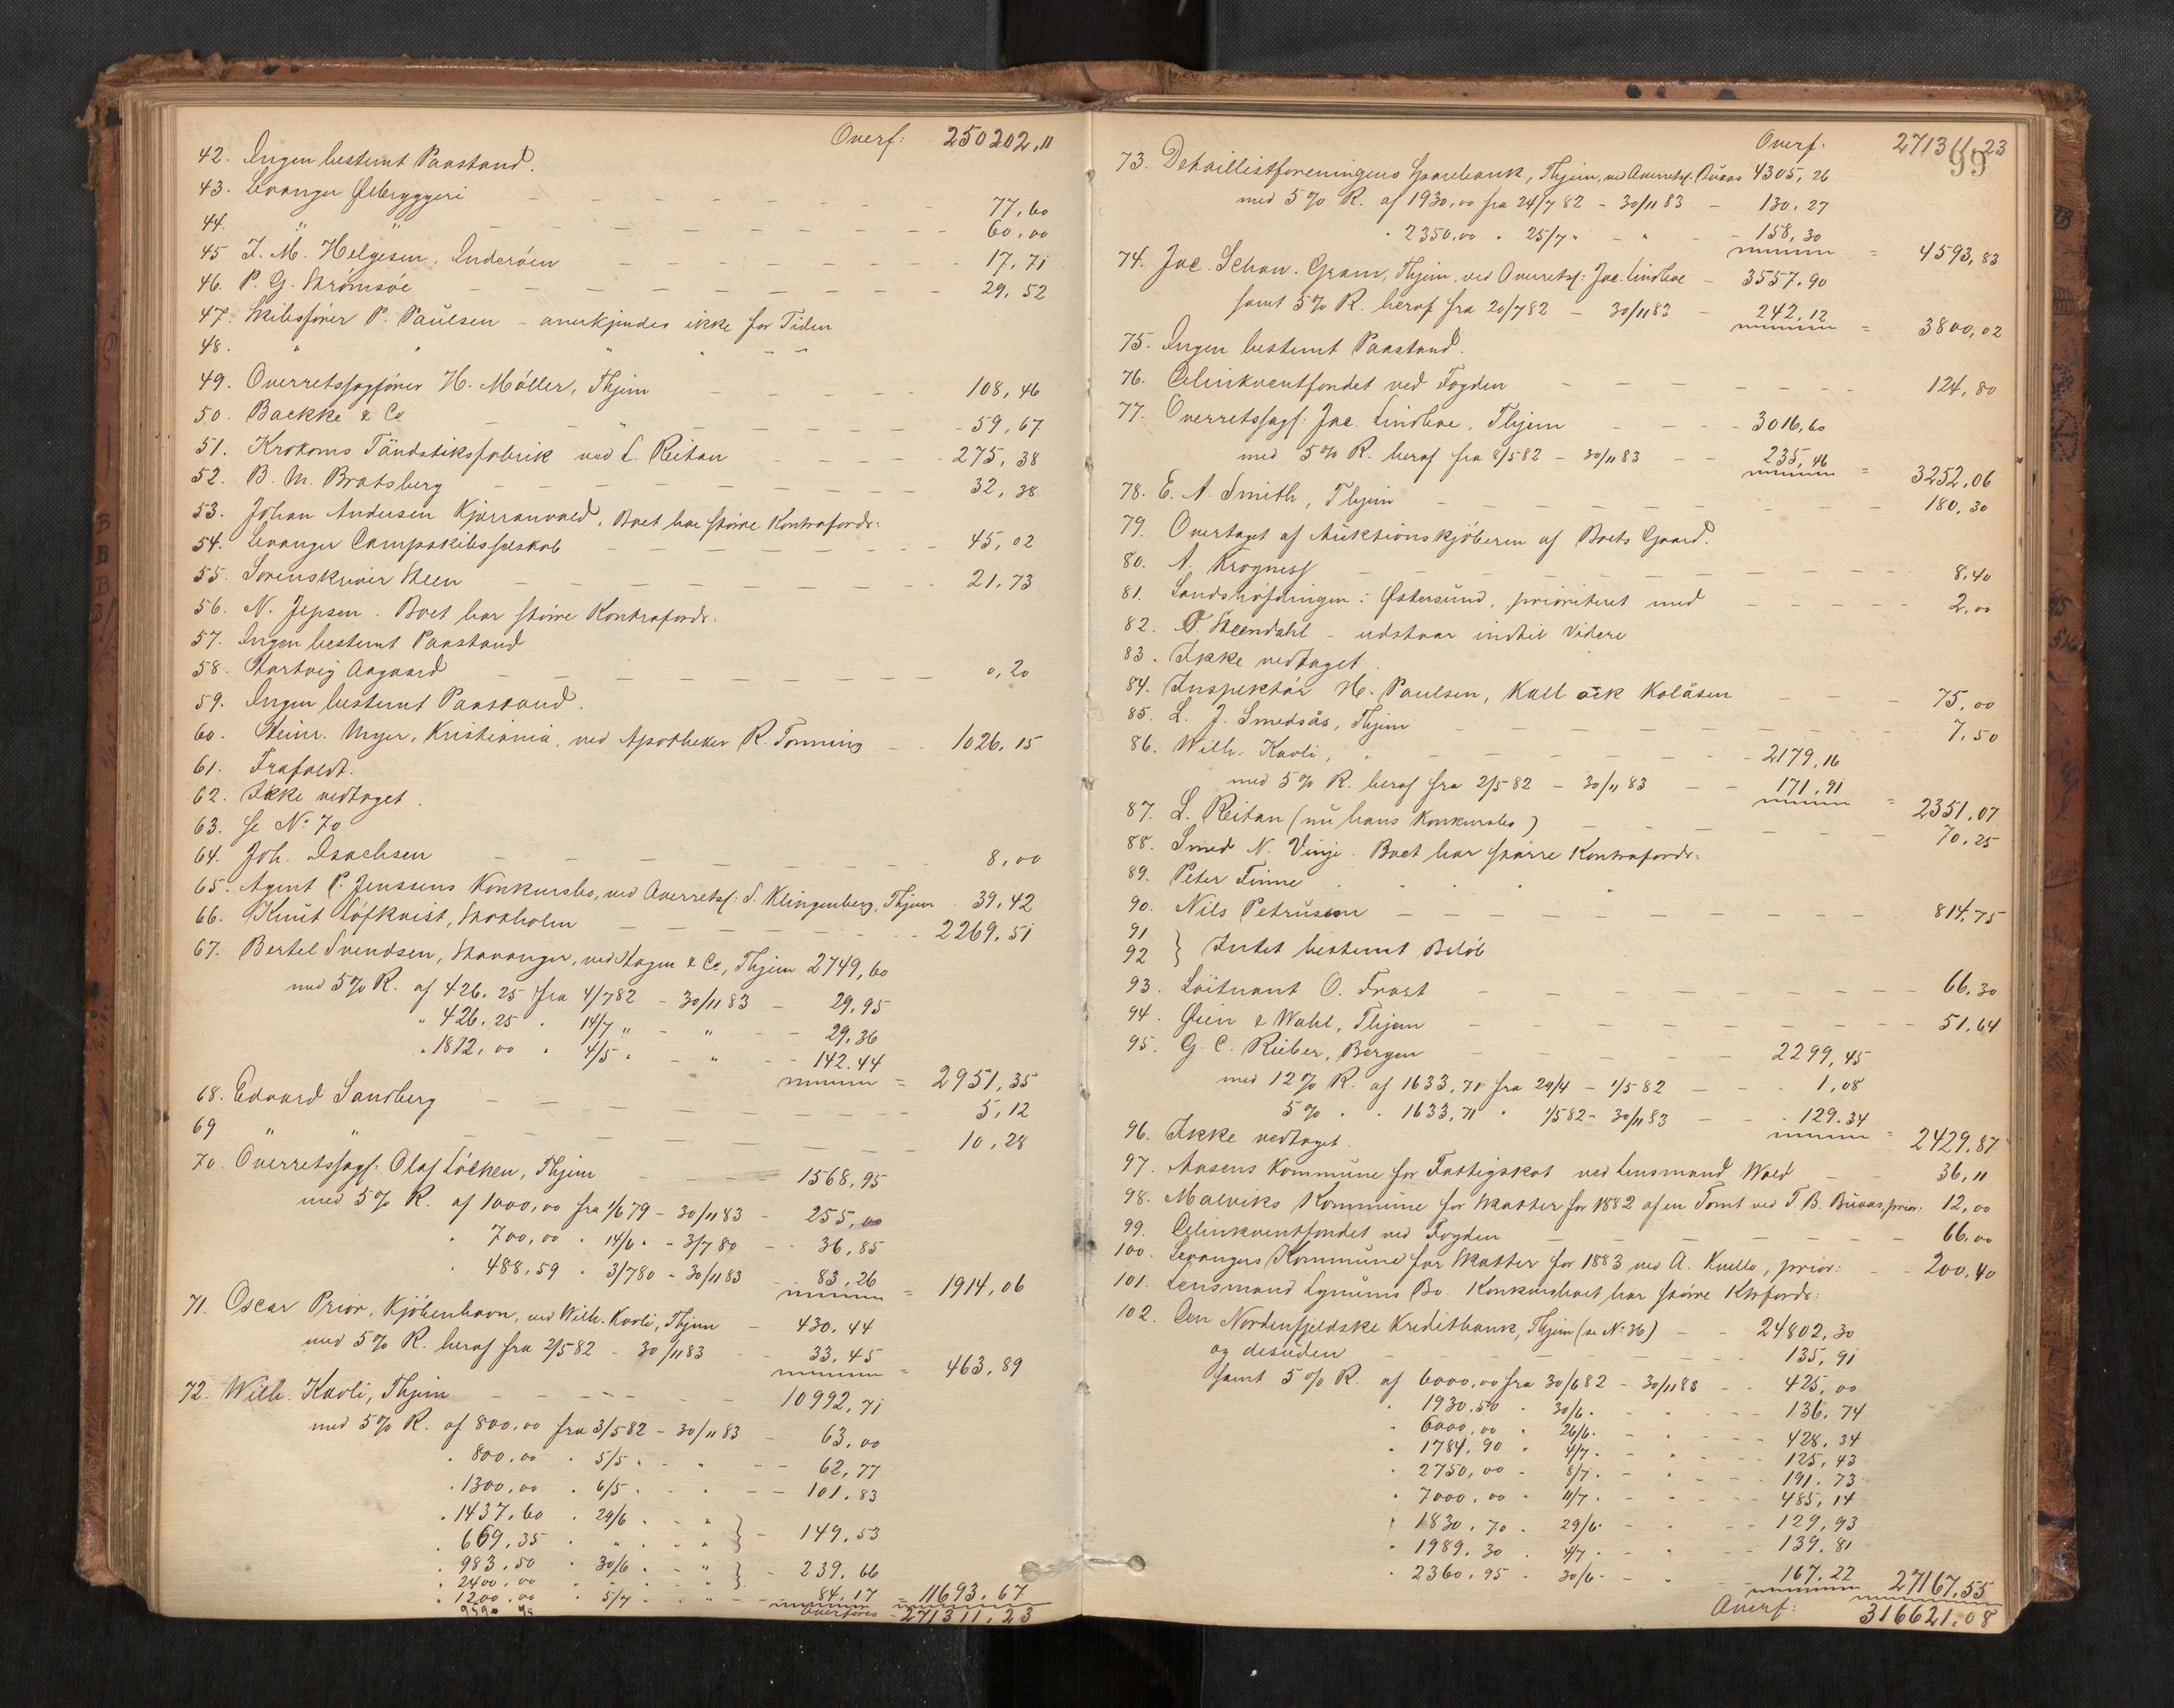 Overf: 250202,11
42. Ingen bestemt Paastand.
43. Levanger Ølbryggeri — 77,60
44. " " — 60,00
45 J. M. Helgesen, Inderøen — 17,71
46. P. G. Strömsöe — 29,52
47. Skibsfører P. Paulsen – anerkjendes ikke for Tiden
48. " " " " "
49. Overretssagfører H. Möller, Thjem — 108,46
50. Backke & Co — 59,67
51. Krokoms Tändstiksfabrik ved L. Reitan — 275,38
52. B. M. Bratsberg — 32,38
53. Johan Andersen Kjærranvald. Boet har større Kontrafordr:
54. Levanger Dampskibsselskab — 45,02
55. Sorenskriver Steen — 21,73
56. N. Jepsen. Boet har større Kontrafordr:
57. Ingen bestemt Paastand
58. Hartvig Aagaard — 0,20
59. Ingen bestemt Paastand.
60. Heinr. Meyer, Kristiania, ved Apotheker R. Tonning — 1026,15
61. Frafaldt.
62. Ikke vedtaget.
63. Se No 70
64. Joh. Isachsen — 8,00
65. Agent P. Jenssens Konkursbo, ved Overretss: S. Klingenberg, Thjem . 39,42
66. Knut Löfkvist, Stockholm — 2269,51
67. Bertel Svendsen, Stavanger, ved Hagen & Co, Thjem 2749,60
med 5% R. af 426.25 fra 4/7 82 – 30/11 83 – 29,95
" 426.25 " 14/7 " – " — 29,36
" 1812,00 " 4/5 " – " — 142.44
= 2951,35
68. Edvard Sandberg — 5,12
69 " " — 10,28
70. Overretssagf: Olaf Löchen, Thjem — 1568,95
med 5% R. af 1000,00 fra 1/6 79 – 30/11 83 – 255,00
" 700,00 " 14/6 " – 3/7 80 – 36,85
" 488,59 " 3/7 80 – 30/11 83 – 83,26
= 1914,06
71. Oscar Prior, Kjöbenhavn, ved Wilh. Kavli, Thjem – 430.44
med 5% R. heraf fra 2/5 82 – 30/11 83 – 33,45
= 463,89
72. Wilh. Kavli, Thjem — 10992,71
med 5% R. af 800,00 fra 3/5 82 – 30/11 83 – 63,00
" 800,00 " 5/5 " – " — 62,77
" 1300,00 " 6/5 " – " — 101.83
" 1437,60 " 29/6 " – "
" 669,35 " " " – " } – 149,53
" 983,50 " 30/6 " – "
" 2400,00 " " " – " } – 239,66
" 1200,00 " 5/7 " – " — 84.17 = 11693.67
Overføres 271311.23
Overf. 271311,23
99
73. Detaillistforeningens Sparebank, Thjem, ved Overretssf. Buaas 4305,26
med 5% R. af 1930,00 fra 24/7 82 – 30/11 83 – 130.27
" 2350,00 " 25/7 " – " — 158,30
= 4593,83
74. Jac. Schav. Gram, Thjem, ved Overretssf: Jac. Lindboe – 3557.90
samt 5% R. heraf fra 20/7 82 – 30/11 83 – 242,12
= 3800,02
75. Ingen bestemt Paastand.
76. Delinkventfondet ved Fogden — 124,80
77. Overretssagf: Jac. Lindboe, Thjem — 3016,60
med 5% R. heraf fra 8/5 82 – 30/11 83 — 235,46
= 3252,06
78. E. A. Smith, Thjem — 180,30
79. Overtaget af Auktionskjöberen af Boets Gaard.
80. A. Krogness — 8,40
81. Landshöfdingen i Østersund, prioriteret med — 2,00
82. O. Steendahl – udstaar indtil Videre
83. Ikke vedtaget.
84. Inspektör H. Paulsen, Kall ock Kolåsen — 75,00
85. L. J. Smedsås, Thjem — 7,50
86. Wilh. Kavli, " — 2179,16
med 5% R. heraf fra 2/5 82 – 30/11 83 — 171,91
= 2351,07
87. L. Reitan (nu hans Konkursbo) — 70,25
88. Smed N. Vinje. Boet har större Kontrafordr:
89. Peter Finne " " " "
90. Nils Petrusen — 814,75
91
92 } Intet bestemt Beløb
93. Löitnant O. Frost — 66,30
94. Øien & Wahl, Thjem — 51,64
95. G. C. Rieber, Bergen — 2299,45
med 12% R. af 1633,71 fra 29/4 – 1/5 82 — 1,08
5% " " 1633,71 " 1/5 82 – 30/11 83 — 129.34
= 2429,87
96. Ikke vedtaget.
97. Aasens Kommune for Fattigskat ved Lensmand Wold — 36,11
98. Malviks Kommune for Skatter for 1882 af en Tomt ved T. B. Buaas, prior: 12,00
99. Delinkventfondet ved Fogden — 66,00
100. Levangers Kommune for Skatter for 1883 ved A. Kvello, prior: — 200,40
101. Lensmand Lynums Bo. Konkursboet har större Ktrfordr:
102. Den Nordenfjeldske Kreditbank, Thjem (se No 36) — 24802,30
og desuden — 135,91
samt 5% R. af 6000,00 fra 30/6 82 – 30/11 83 — 425,00
" 1930.50 " 30/6 " – " — 136,74
" 6000,00 " 26/6 " – " — 428,34
" 1784,90 " 4/7 " – " — 125,43
" 2750,00 " 8/7 " – " — 191.73
" 7000,00 " 11/7 " – " — 485,14
" 1830,70 " 29/6 " – " — 129,93
" 1989,30 " 4/7 " – " — 139.81
" 2360,95 " 30/6 " – " — 167.22 27167.55
Overf: 316621,08